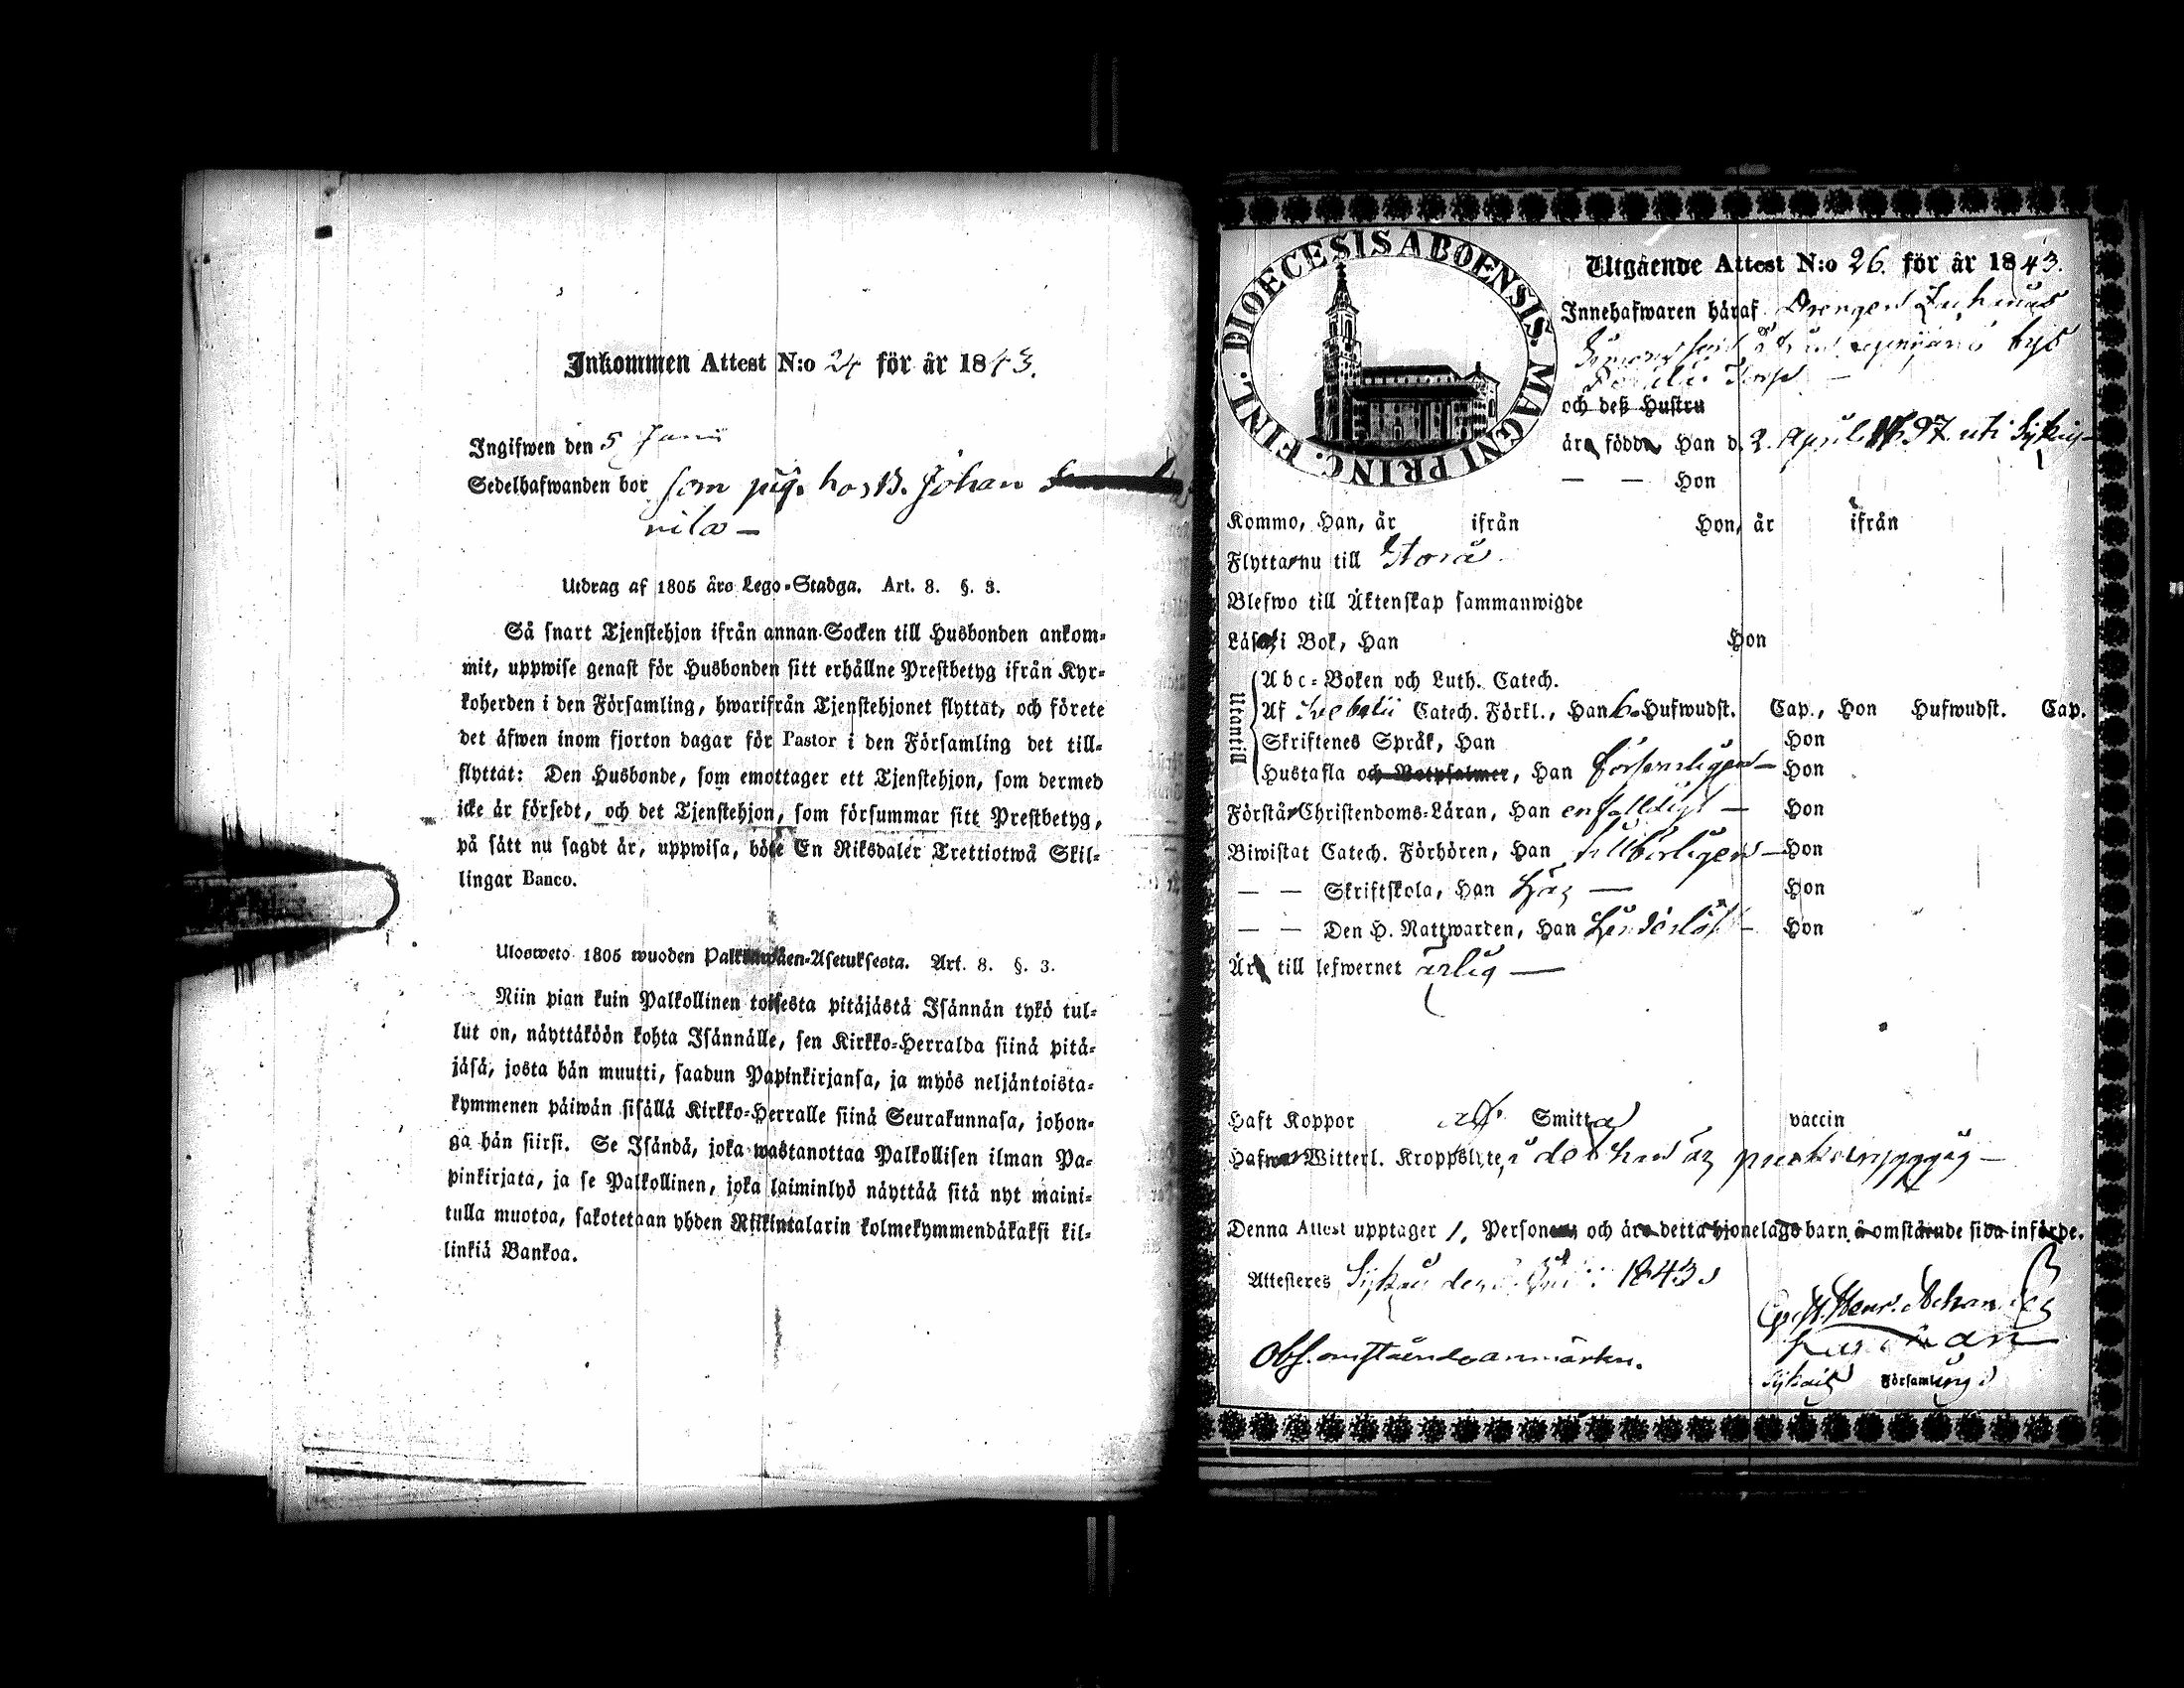 Inkommen Attest N:o 24 för år 1843.
Ingifwen den 5 Junii
Sedelhafwanden bor som pig. hos B. Johan
nila —
Utdrag af 1805 års Lego-Stadga. Art. 8. §. 3.
Så snart Tjenstehjon ifrån annan Socken till Husbonden ankom-
mit, uppwise genast för Husbonden sitt erhållne Prestbetyg ifrån Kyr-
koherden i den Församling, hwarifrån Tjenstehjonet flyttat, och förete
det äfwen inom fjorton dagar för Pastor i den Församling det till-
flyttat: Den Husbonde, som emottager ett Tjenstehjon, som dermed
icke är försedt, och det Tjenstehjon, som försummar sitt Prestbetyg,
på sätt nu sagdt är, uppwisa, böte En Riksdaler Trettiotwå Skil-
lingar Banco.
Ulosweto 1805 wuoden Palkkawäen-Asetuksesta. Art. 8. §. 3.
Niin pian kuin Palkollinen toisesta pitäjästä Isännän tykö tul-
lut on, näyttäköön kohta Isännälle, sen Kirkko-Herralda siinä pitä-
jäsä, josta hän muutti, saadun Papinkirjansa, ja myös neljäntoista-
kymmenen päiwän sisällä Kirkko-Herralle siinä Seurakunnasa, johon-
ga hän siirsi. Se Isändä, joka wastanottaa Palkollisen ilman Pa-
pinkirjata, ja se Palkollinen, joka laiminlyö näyttää sitä nyt maini-
tulla muotoa, sakotetaan yhden Riikintalarin kolmekymmendäkaksi kil-
linkiä Bankoa.
DIOECESIS ABOENSIS. MAGNI PRINC. FINL.
Utgående Attest N:o 26. för år 1843.
Innehafwaren häraf Drengen Juhmus
bys
Torp —
och deß Hustru
äro födda Han d. 2. April 1797 uti
— — Hon
Kommo, Han, år ifrån Hon, år ifrån
Flytta nu till Storå
Blefwo till Äktenskap sammanwigde
Läsa i Bok, Han Hon
Utantill
Abc-Boken och Luth. Catech.
Af Svebelii Catech. Förkl., Han 6. Hufwudst. Cap., Hon Hufwudst. Cap.
Skriftenes Språk, Han Hon
Hustafla och Botpsalmer, Han försvarligen — Hon
Förstå Christendoms-Läran, Han enfaldigt — Hon
Biwistat Catech. Förhören, Han tillbörligen — Hon
— — Skriftskola, Han — Hon
— — Den H. Nattwarden, Han — Hon
Är till lefwernet ärlig —
Haft Koppor Smitta vaccin
Hafwa Witterl. Kroppslyte, är det han är puckelryggig —
Denna Attest upptager 1. Personer och äro detta hjonelags barn å omstående sida införde.
Attesteres 1843
Obs. omstående anmärkn.
Församling